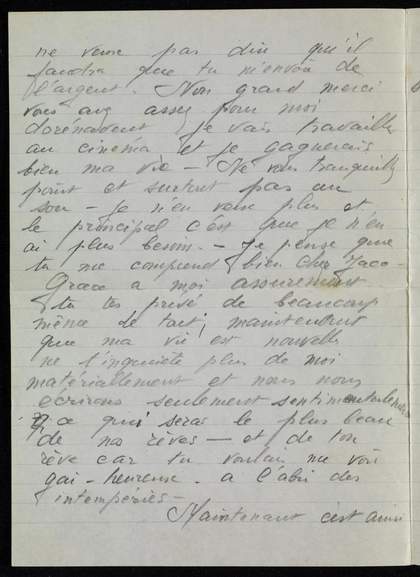 ne veux pas dire qu'il
faudra que tu m'envoie de
l'argent. Non grand merci
vous avez assez pour moi
dorénavent je vais travailler
au cinema et je gagnerais
bien ma vie - Ne vous tranquilly
point et surtout pas un
sou - je n'en veux plus et
le principal c'est que je n'en
ai plus besoin. - je pense que
tu me comprend bien cher Jaco -
Grace a moi assurement
tu tes privé de beaucoup
même de tout, maintenant
que ma vie est nouvelle
ne t'inquiete plus de moi
matériallement et nous nous
ecrirons seulement sentimentalement
ce qui seras le plus beau
de nos rêves - et de ton
rêve car tu voulais me voir
gai - heureuse. a l'abri des
intempéries -
Maintenant c'est ainsi